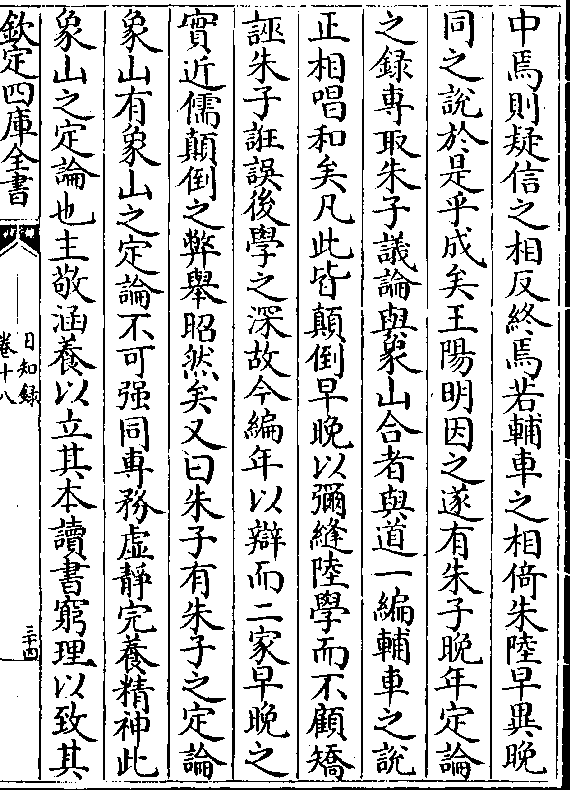 中焉則疑信之相反終焉若輔車之相倚朱陸早異晚
同之說於是乎成矣王陽明因之遂有朱子晚年定論
之録專取朱子議論與象山合者與道一編輔車之說
正相唱和矣凡此皆顛倒早晚以彌縫陸學而不顧矯
誣朱子誑誤後學之深故今編年以辯而二家早晚之
實近儒顛倒之弊舉昭然矣又曰朱子有朱子之定論
象山有象山之定論不可强同專務虛靜完養精神此
象山之定論也主敬涵養以立其本讀書窮理以致其
欽定四庫全書
日知録
卷十八
三十四